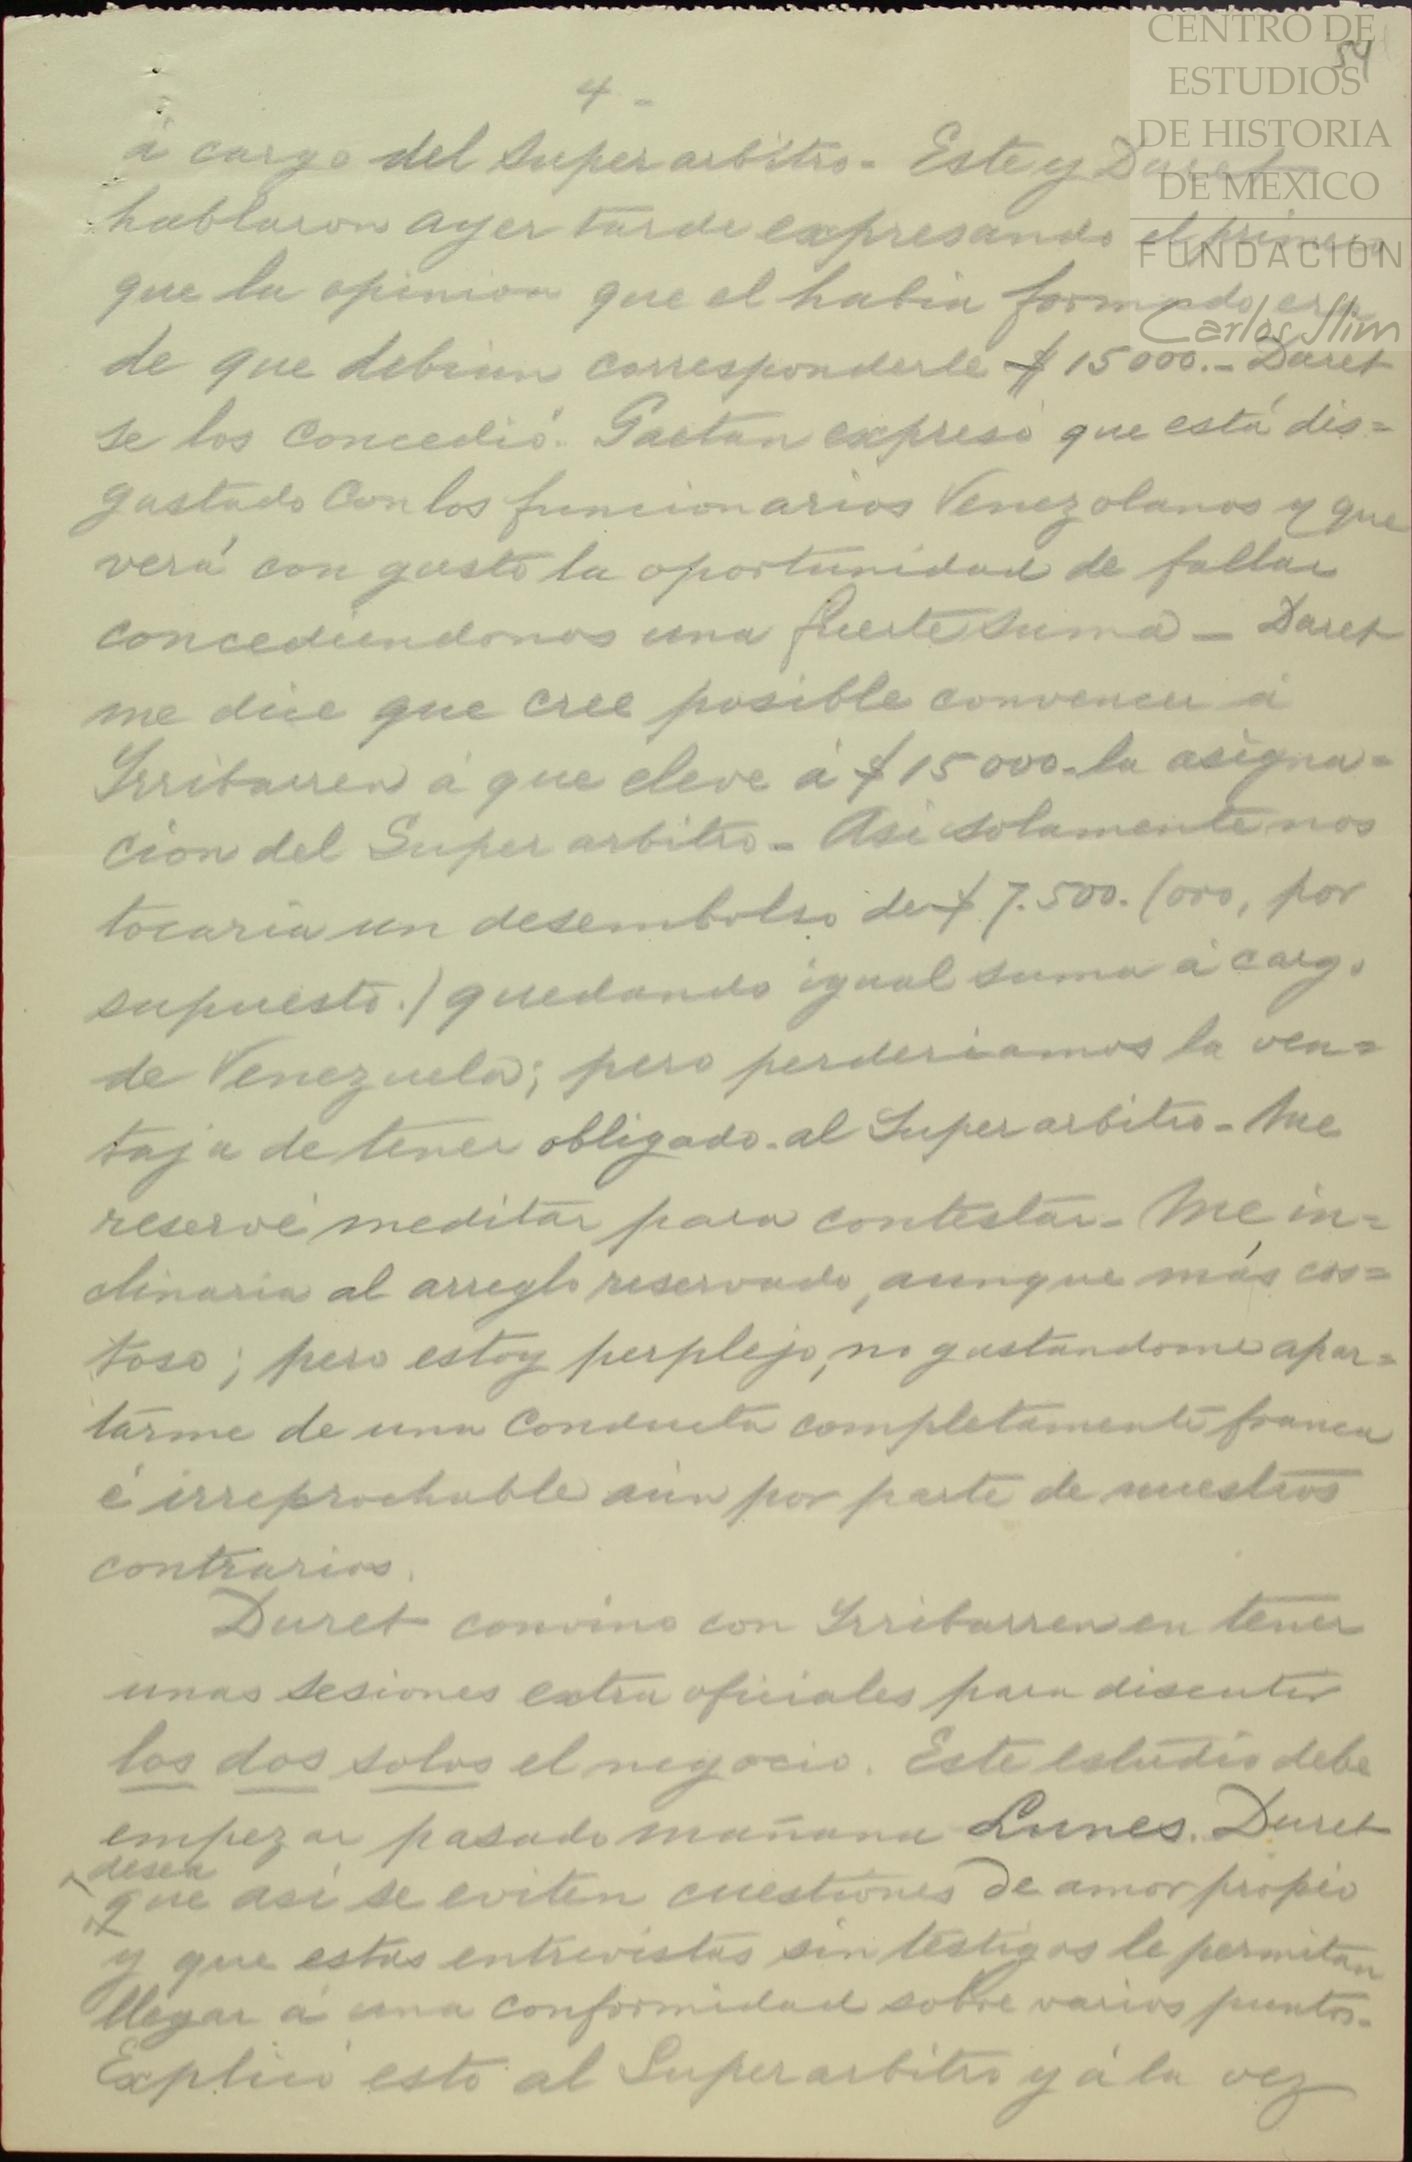 CENTRO DE
ESTUDIOS
DE HISTORIA
DE MEXICO
FUNDACION
Carlos Slim
54
4-
á cargo del Superarbitro- Este y Duret
hablaron ayer tarde expresando el primero
que la opinion que el habia formado era
de que debian corresponderle $15000.- Duret
se los concedió. Gaetan expresó que está dis=
gustado con los funcionarios Venezolanos y que
verá con gusto la oportunidad de fallar
concediendonos una fuerte suma - Duret
me dice que cree posible convencer á
Irribarren á que eleve á $15000- la asigna=
cion del Superarbitro- Asi solamente nos
tocaria un desembolso de $7.500. (oro, por
supuesto.) quedando igual suma á cargo
de Venezuela; pero perderiamos la ven=
taja de tener obligado al Superarbitro- Me
reservé meditar para contestar- Me in=
clinaria al arreglo reservado, aunque más cos=
toso; pero estoy perplejo, no gustandome apar=
tarme de una conducta completamente franca
é irreprochable aún por parte de nuestros
contrarios.
Duret convino con Irribarren en tener
unas sesiones extra oficiales para discutir
los dos solos el negocio. Este estudio debe
empezar pasado mañana Lunes. Duret
desea
que asi se eviten cuestiones de amor propio
y que estas entrevistas sin testigos le permitan
llegar á una conformidad sobre varios puntos-
Explicó esto al Superarbitro y á la vez